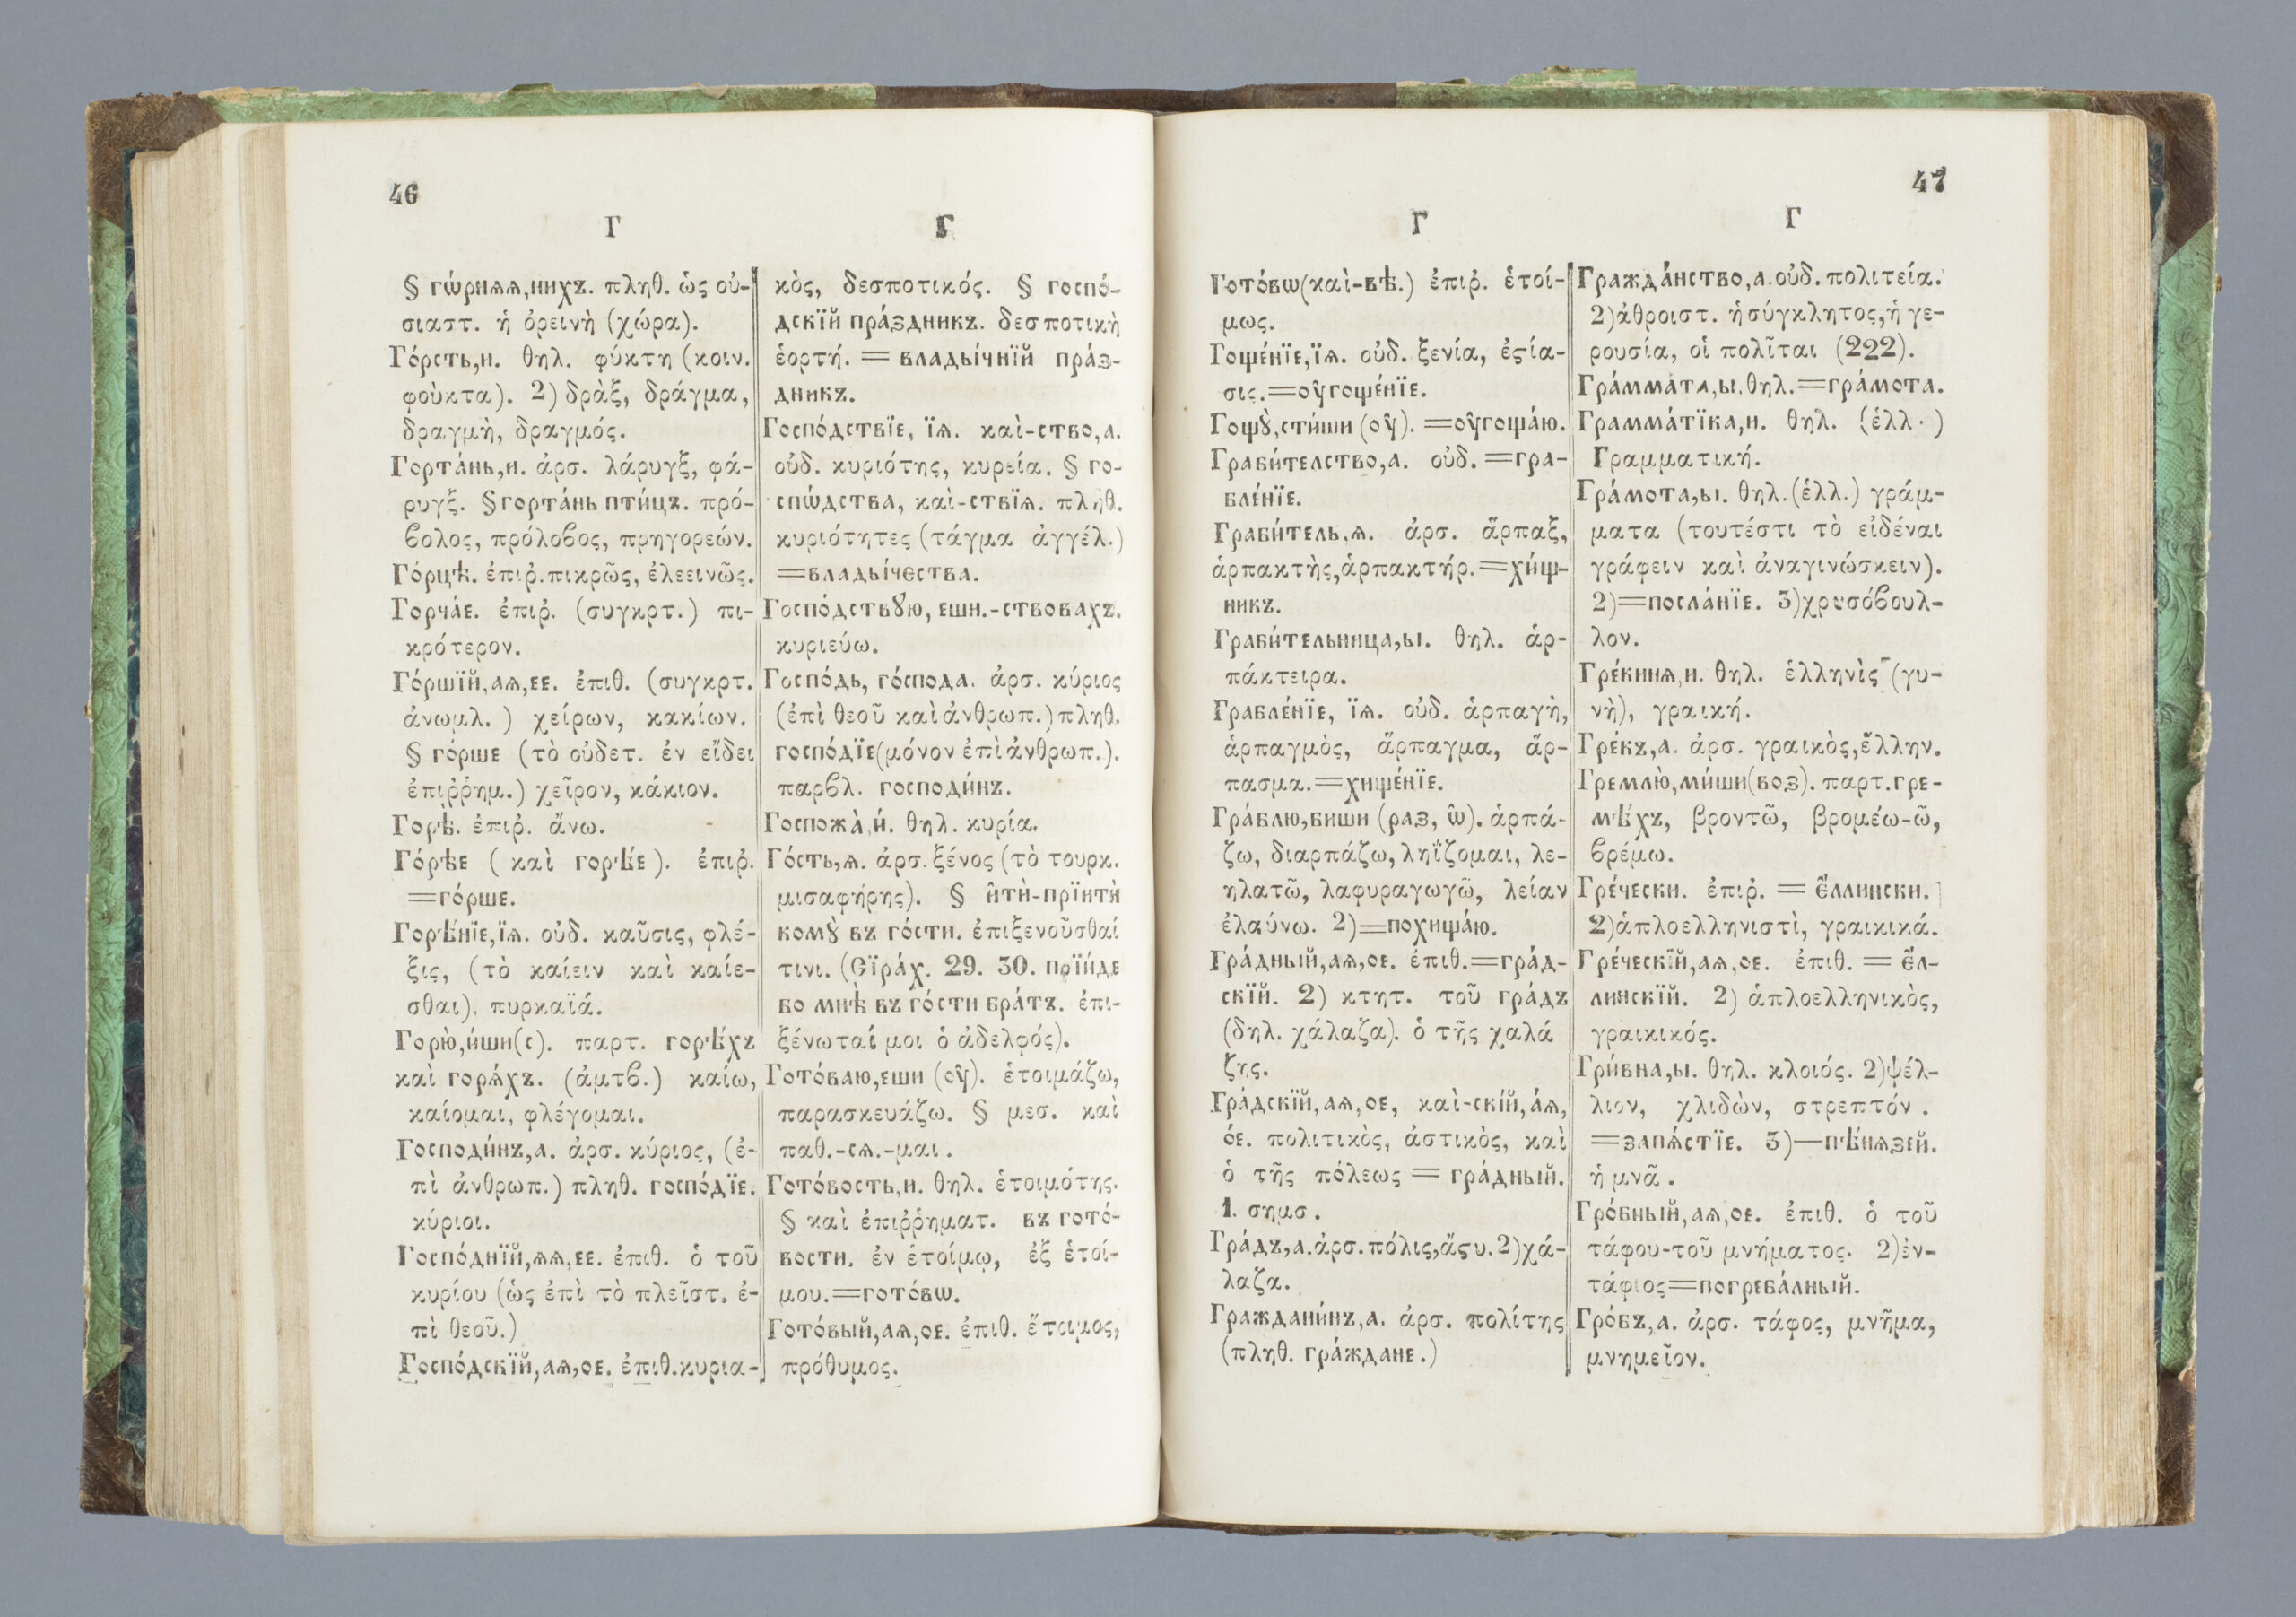 46
Г
Г
§ гѡ́рняѧ,нихъ. πληθ. ὡς οὐ-
σιαστ. ἡ ὀρεινὴ (χώρα).
Го́рсть,и. θηλ. φύκτη (κοιν.
φοὺκτα). 2) δρὰξ, δράγμα,
δραγμὴ, δραγμός.
Горта́нь,и. ἀρσ. λάρυγξ, φά-
ρυγξ. § горта́нь пти́цъ. πρό-
ϐολος, πρόλοϐος, πρηγορεών.
Го́рцѣ. ἐπιῤ. πικρῶς, ἐλεεινῶς.
Горча́е. ἐπιῤ. (συγκρτ.) πι-
κρότερον.
Го́ршїй,аѧ,ее. ἐπιθ. (συγκρτ.
ἀνωμλ.) χείρων, κακίων.
§ го́рше (τὸ οὐδετ. ἐν εἴδει
ἐπιῤῥημ.) χεῖρον, κάκιον.
Горѣ̀. ἐπιῤ. ἄνω.
Го́рѣе ( καὶ горѣ́е ). ἐπιῤ.
=го́рше.
Горѣ́нїе,їѧ. οὐδ. καῦσις, φλέ-
ξις, (τὸ καίειν καὶ καίε-
σθαι), πυρκαϊά.
Горю̀,и́ши(с). παρτ. горѣ́хъ
καὶ горѧ́хъ. (ἀμτϐ.) καίω,
καίομαι, φλέγομαι.
Господи́нъ,а. ἀρσ. κύριος, (ἐ-
πὶ ἀνθρωπ.) πληθ. госпо́дїе.
κύριοι.
Госпо́днїй,ѧѧ,ее. ἐπιθ. ὁ τοῦ
κυρίου (ὡς ἐπὶ τὸ πλεῖστ. ἐ-
πὶ θεοῦ.)
Госпо́дскїй,аѧ,ое. ἐπιθ. κυρια-
κὸς, δεσποτικός. § госпо́-
дскїй пра́здникъ. δεσποτικὴ
ἑορτή. = влады́чнїй пра́з-
дникъ.
Госпо́дствїе, їѧ. καὶ-ство,а.
οὐδ. κυριότης, κυρεία. § го-
спѡ́дства, καὶ-ствїѧ. πληθ.
κυριότητες (τάγμα ἀγγέλ.)
=влады́чества.
Госпо́дствꙋю, еши.-ствовахъ.
κυριεύω.
Госпо́дь, го́спода. ἀρσ. κύριος
(ἐπὶ θεοῦ καὶ ἀνθρωπ.) πληθ.
госпо́дїе(μόνον ἐπὶ ἀνθρωπ.).
παρϐλ. господи́нъ.
Госпожа̀,и́. θηλ. κυρία.
Го́сть,ѧ. ἀρσ. ξένος (τὸ τουρκ.
μισαφήρης). § и҆тѝ-прїитѝ
комꙋ̀ въ го́сти. ἐπιξενοῦσθαί
τινι. (Сїра́х. 29. 30. прїи́де
бо мнѣ̀ въ го́сти бра́тъ. ἐπι-
ξένωταί μοι ὁ ἀδελφός).
Гото́ваю,еши (ᲂу҆). ἑτοιμάζω,
παρασκευάζω. § μεσ. καὶ
παθ.-сѧ.-μαι.
Гото́вость,и. θηλ. ἑτοιμότης.
§ καὶ ἐπιῤῥηματ. въ гото́-
вости. ἐν ἑτοίμῳ, ἐξ ἑτοί-
μου.=гото́вѡ.
Гото́вый,аѧ,ое. ἐπιθ. ἕτοιμος,
πρόθυμος.
47
Г
Г
Гото́вѡ(καὶ-вѣ.) ἐπιῤ. ἑτοί-
μως.
Гоще́нїе,їѧ. οὐδ. ξενία, ἑϛία-
σις.=ᲂу҆гоще́нїе.
Гощꙋ̀,сти́ши (ᲂу҆). =ᲂу҆гоща́ю.
Граби́телство,а. οὐδ.=гра-
бле́нїе.
Граби́тель,ѧ. ἀρσ. ἅρπαξ,
ἁρπακτὴς,ἁρπακτήρ.=хи́щ-
никъ.
Граби́тельница,ы. θηλ. ἁρ-
πάκτειρα.
Грабле́нїе, їѧ. οὐδ. ἁρπαγὴ,
ἁρπαγμὸς, ἅρπαγμα, ἅρ-
πασμα.=хище́нїе.
Гра́блю,биши (раз, ѿ). ἁρπά-
ζω, διαρπάζω, ληΐζομαι, λε-
ηλατῶ, λαφυραγωγῶ, λείαν
ἐλαύνω. 2)=похища́ю.
Гра́дный,аѧ,ое. ἐπιθ.=гра́д-
скїй. 2) κτητ. τοῦ гра́дъ
(δηλ. χάλαζα). ὁ τῆς χαλά
ζης.
Гра́дскїй,аѧ,ое, καὶ-скі́й,а́ѧ,
о́е. πολιτικὸς, ἀστικὸς, καὶ
ὁ τῆς πόλεως = гра́дный.
1. σημσ.
Гра́дъ,а.ἀρσ. πόλις, ἄϛυ. 2)χά-
λαζα.
Граждани́нъ,а. ἀρσ. πολίτης
(πληθ. гра́ждане.)
Гражда́нство,а. οὐδ. πολιτεία.
2)ἀθροιστ. ἡ σύγκλητος, ἡ γε-
ρουσία, οἱ πολῖται (222).
Гра́ммата,ы. θηλ.=гра́мота.
Грамма́тїка,и. θηλ. (ἑλλ.)
Γραμματική.
Гра́мота,ы. θηλ. (ἑλλ.) γράμ-
ματα (τουτέστι τὸ εἰδέναι
γράφειν καὶ ἀναγινώσκειν).
2)=посла́нїе. 3)χρυσόϐουλ-
λον.
Гре́кинѧ,и. θηλ. ἑλληνὶς (γυ-
νὴ), γραική.
Гре́къ,а. ἀρσ. γραικὸς, ἕλλην.
Гремлю̀,ми́ши(воз). παρτ. гре-
мѣ́хъ, βροντῶ, βρομέω-ῶ,
ϐρέμω.
Гре́чески. ἐπιῤ. = є҆́ллински.
2)ἁπλοελληνιστὶ, γραικικά.
Гре́ческїй,аѧ,ое. ἐπιθ. = є҆́л-
линскїй. 2) ἁπλοελληνικὸς,
γραικικός.
Гри́вна,ы. θηλ. κλοιός. 2)ψέλ-
λιον, χλιδὼν, στρεπτόν.
=запѧ́стїе. 3)—пѣ́нѧзей.
ἡ μνᾶ.
Гро́бный,аѧ,ое. ἐπιθ. ὁ τοῦ
τάφου-τοῦ μνήματος. 2)ἐν-
τάφιος=погреба́лный.
Гро́бъ,а. ἀρσ. τάφος, μνῆμα,
μνημεῖον.